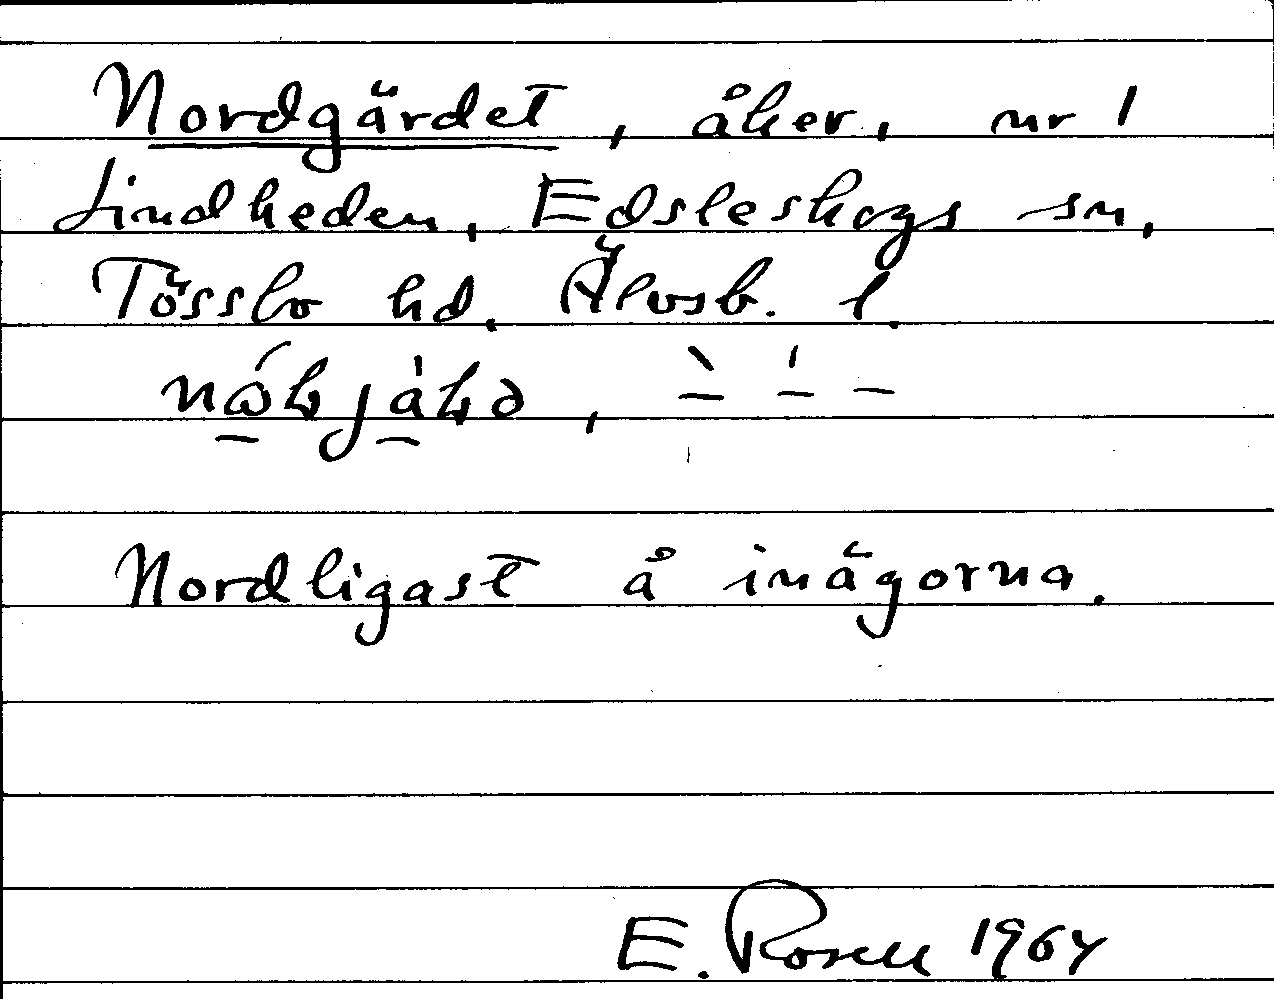 Nordgärdet, åker, nr 1
Lindheden, Edsleskogs sn,
Tössbo hd. Älvsb. l.
Nordligast å inägorna.
E. Rosell 1964